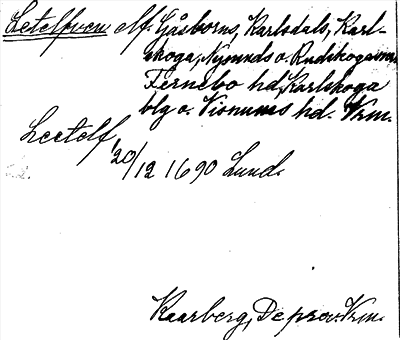 Letelfven elf. Gåsborns, Karlsdals, Karl-
skoga, Nysunds o. Rudskoga snr
Fernebo hd, Karlskoga
blg o. Visnums hd. Vrm.
Leetelf, 20/12 1690 Lund.
Kaarberg, De prov. Vrm.